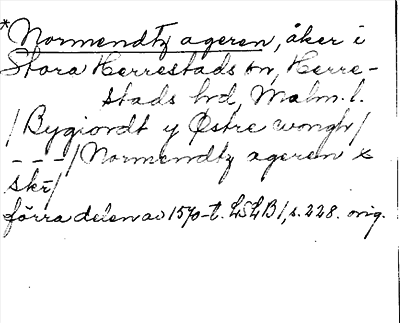 *Normendtz ageren, åker i
Stora Herrestads sn, Herre-
stads hd, Malm. l.
/Bygiordt y Østre wongh/
---/Normendtz ageren x
skr/
förra delen av 1570-t. LSLB 1, s. 228. orig.